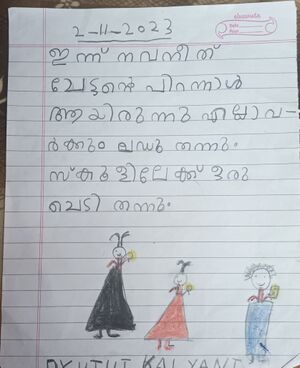 classmate
Date
Page
2-11-2023
ഇന്ന് നവനീത്
ഡേടന്റെ പിറന്നാൾ
ആയിരുന്നു എല്ലാവ-
ർക്കും ലഡു തന്നു.
സ്കൂളിലേക്ക് ഒരു
ചെടി തന്നു.
KALYANI